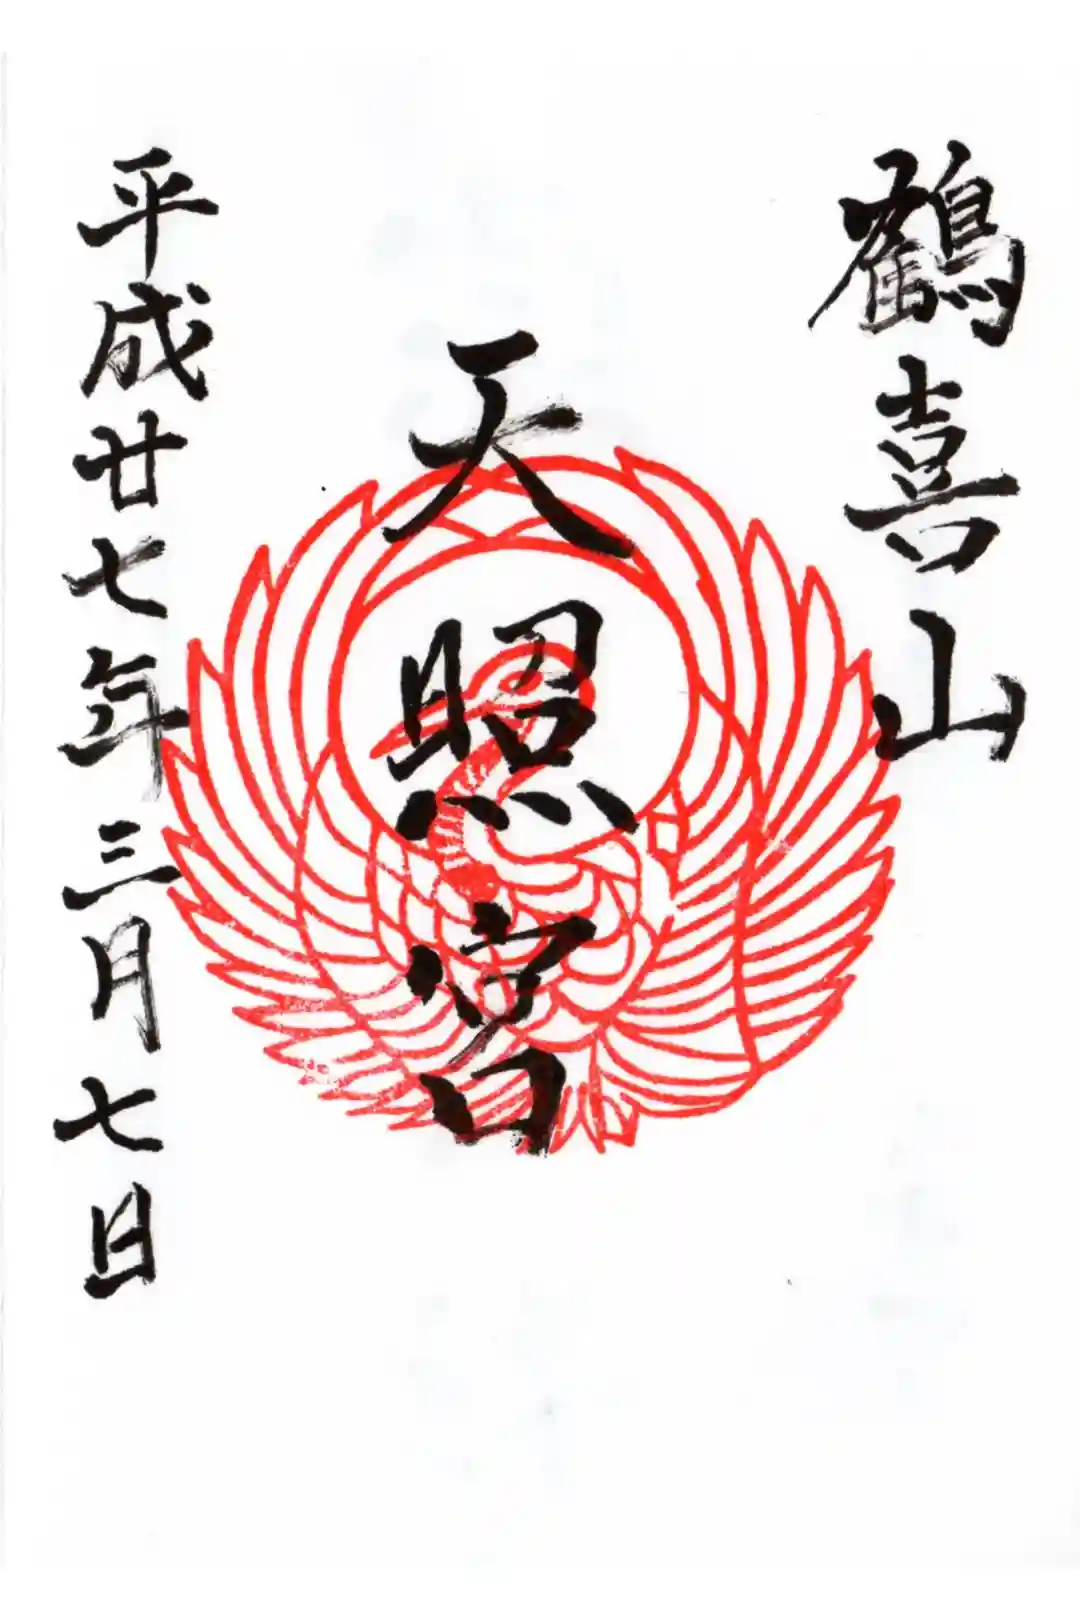 鶴喜山
天照宮
平成廿七年三月七日